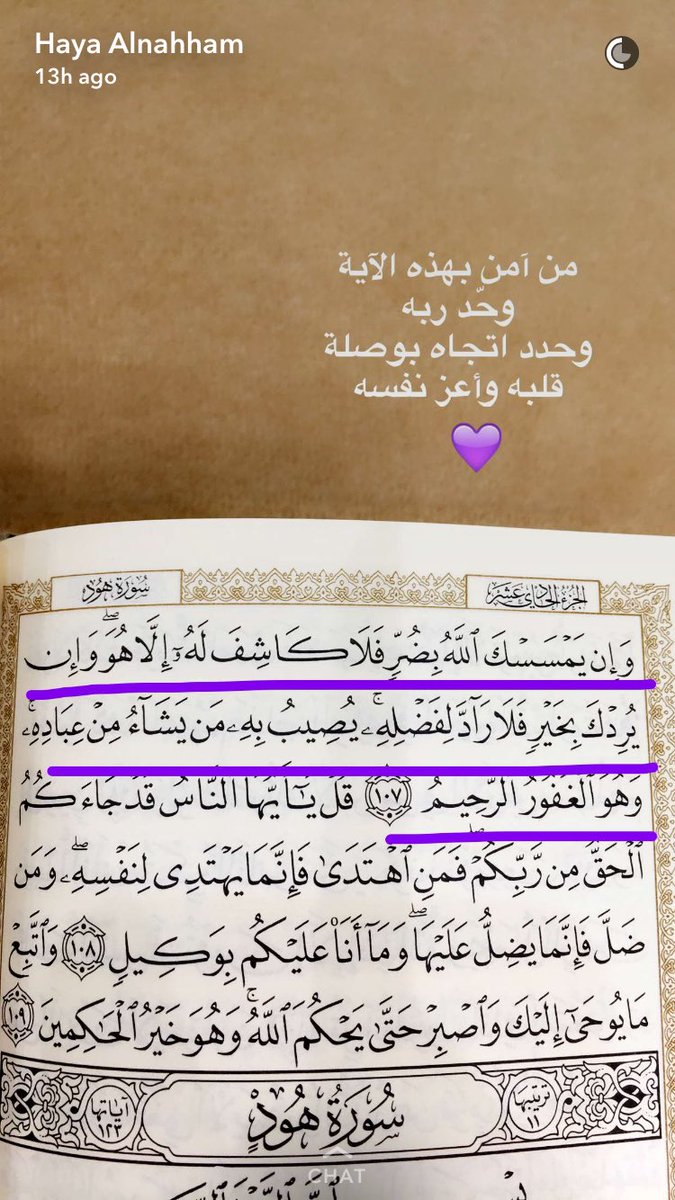 Haya Alnahham
13h ago
من آمن بهذه الآية
وحّد ربه
وحدد اتجاه بوصلة
قلبه وأعز نفسه
سُورَةُ هُودٍ
الجزء الحادي عشر
وَإِن يَمْسَسْكَ ٱللَّهُ بِضُرٍّ فَلَا كَاشِفَ لَهُۥٓ إِلَّا هُوَ ۖ وَإِن
يُرِدْكَ بِخَيْرٍ فَلَا رَآدَّ لِفَضْلِهِۦ ۚ يُصِيبُ بِهِۦ مَن يَشَآءُ مِنْ عِبَادِهِۦ ۚ
وَهُوَ ٱلْغَفُورُ ٱلرَّحِيمُ ١٠٧ قُلْ يَٰٓأَيُّهَا ٱلنَّاسُ قَدْ جَآءَكُمُ
ٱلْحَقُّ مِن رَّبِّكُمْ ۖ فَمَنِ ٱهْتَدَىٰ فَإِنَّمَا يَهْتَدِى لِنَفْسِهِۦ ۖ وَمَن
ضَلَّ فَإِنَّمَا يَضِلُّ عَلَيْهَا ۖ وَمَآ أَنَا۠ عَلَيْكُم بِوَكِيلٍ ١٠٨ وَٱتَّبِعْ
مَا يُوحَىٰٓ إِلَيْكَ وَٱصْبِرْ حَتَّىٰ يَحْكُمَ ٱللَّهُ ۚ وَهُوَ خَيْرُ ٱلْحَٰكِمِينَ ١٠٩
ترتيبها ١١
سُورَةُ هُودٍ
آياتها ١٢٣
CHAT